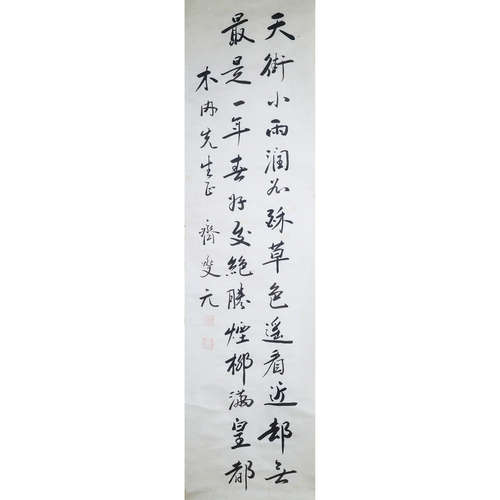 天街小雨潤如酥草色遙看近却無
最是一年春好處絕勝煙柳滿皇都
木內先生正 齊燮元